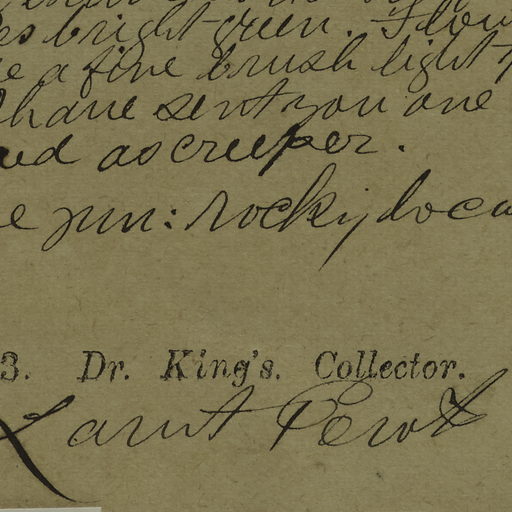 bright green. Flow
a fine brush light
have sent you one
ed as creeper.
e jun: rocky loca
3. Dr. King's. Collector.